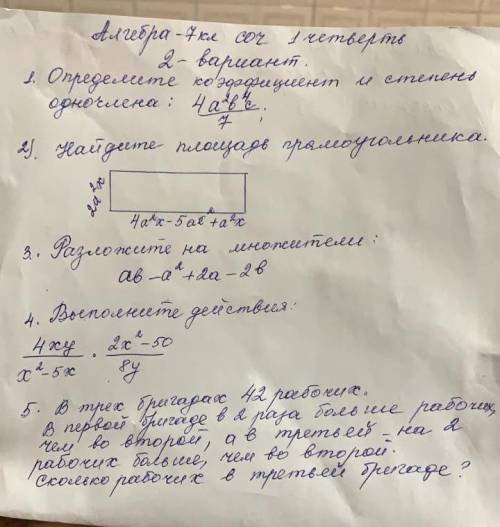 Алгебра-7кл соч 1 четверть
2-вариант.
1. Определите коэффициент и степень
одночлена: 4a²b⁴c/7.
2). Найдите площадь прямоугольника.
2a²x
4a²x-5ac²+a²x
3. Разложите на множители:
ab-a²+2a-2b
4. Выполните действия:
4xy/x²-5x · 2x²-50/8y
5. В трех бригадах 42 рабочих.
В первой бригаде в 2 раза больше рабочих,
чем во второй, а в третьей - на 2
рабочих больше, чем во второй.
Сколько рабочих в третьей бригаде?